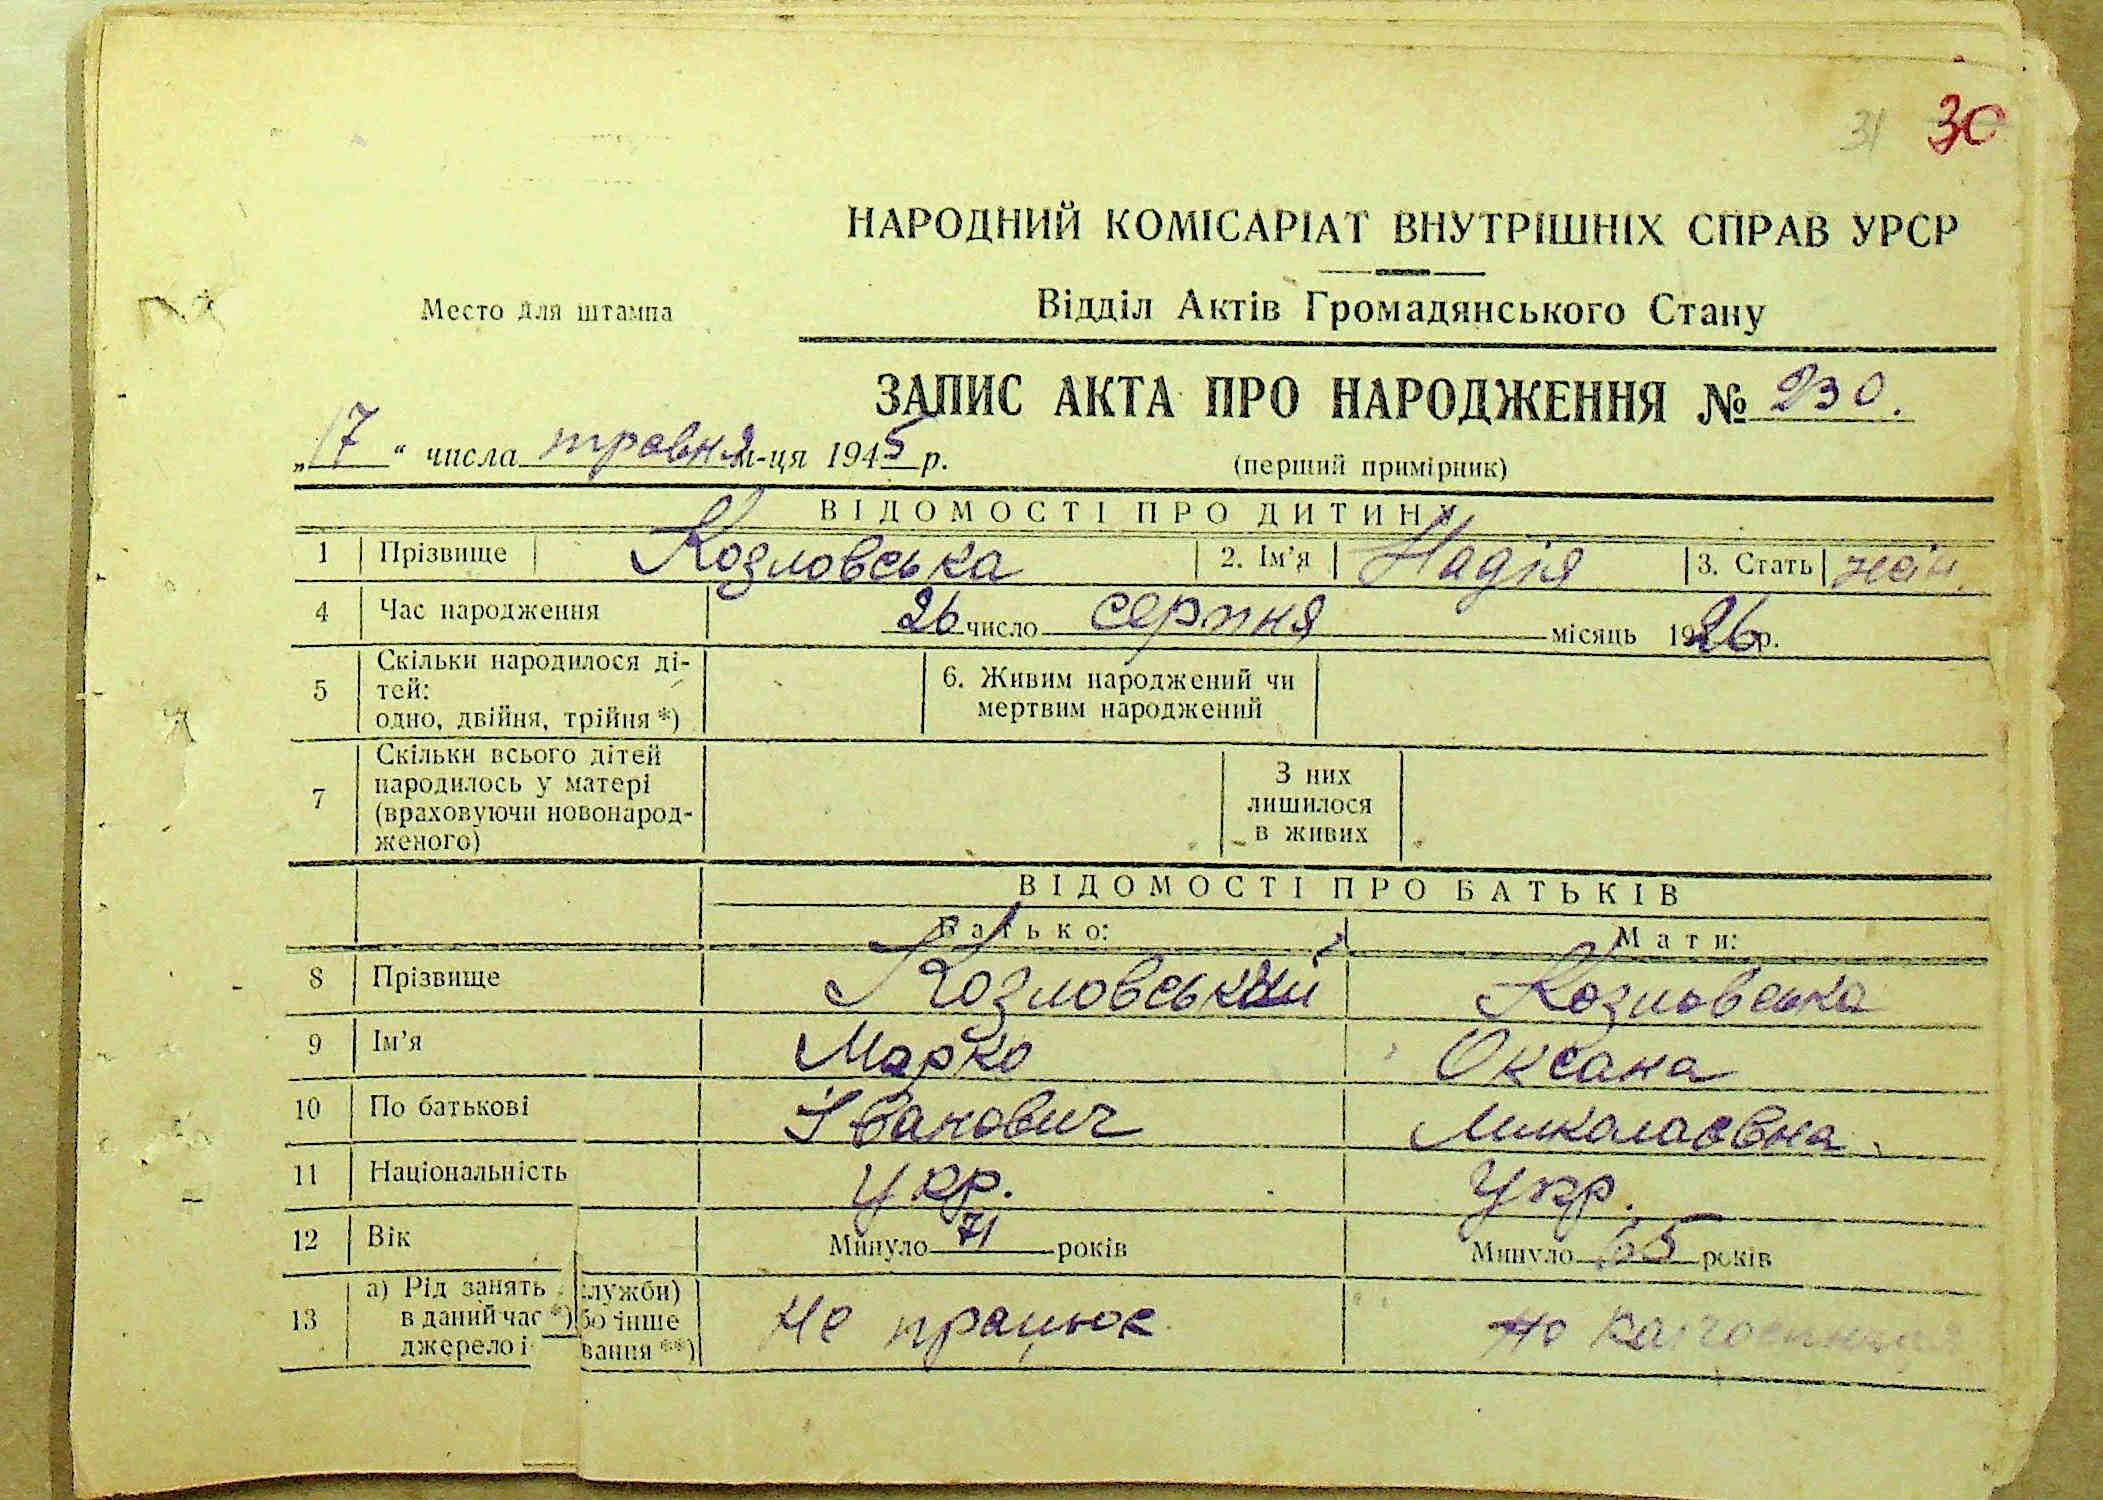 31 30
НАРОДНИЙ КОМІСАРІАТ ВНУТРІШНІХ СПРАВ УРСР
Место для штампа
Відділ Актів Громадянського Стану
ЗАПИС АКТА ПРО НАРОДЖЕННЯ № 230.
„17“ числа травня м-ця 1945 р.
(перший примірник)
ВІДОМОСТІ ПРО ДИТИНУ
1 Прізвище Козловська 2. Ім'я Надія 3. Стать жін.
4 Час народження 26 число серпня місяць 1926 р.
5 Скільки народилося ді-
тей:
одно, двійня, трійня *)
6. Живим народжений чи
мертвим народжений
7 Скільки всього дітей
народилось у матері
(враховуючи новонарод-
женого)
З них
лишилося
в живих
ВІДОМОСТІ ПРО БАТЬКІВ
Батько: Мати:
8 Прізвище Козловський Козловська
9 Ім'я Марко Оксана
10 По батькові Іванович Миколаєвна
11 Національність Укр. Укр.
12 Вік Минуло 71 років Минуло 65 років
13 а) Рід занять служби)
в даний час *) бо інше
джерело і вання **)
Не працює